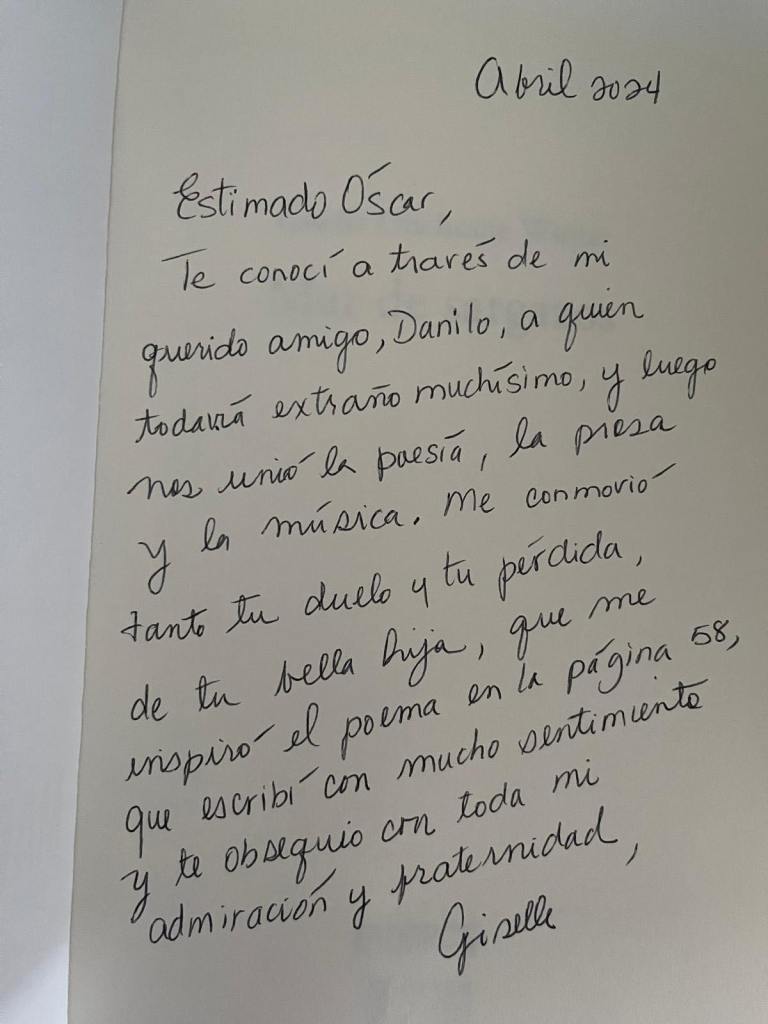 Abril 2024
Estimado Óscar,
Te conocí a través de mi
querido amigo, Danilo, a quien
todavía extraño muchísimo, y luego
nos unió la poesía, la prosa
y la música. Me conmovió
tanto tu duelo y tu pérdida,
de tu bella hija, que me
inspiró el poema en la página 58,
que escribí con mucho sentimiento
y te obsequio con toda mi
admiración y fraternidad,
Giselle